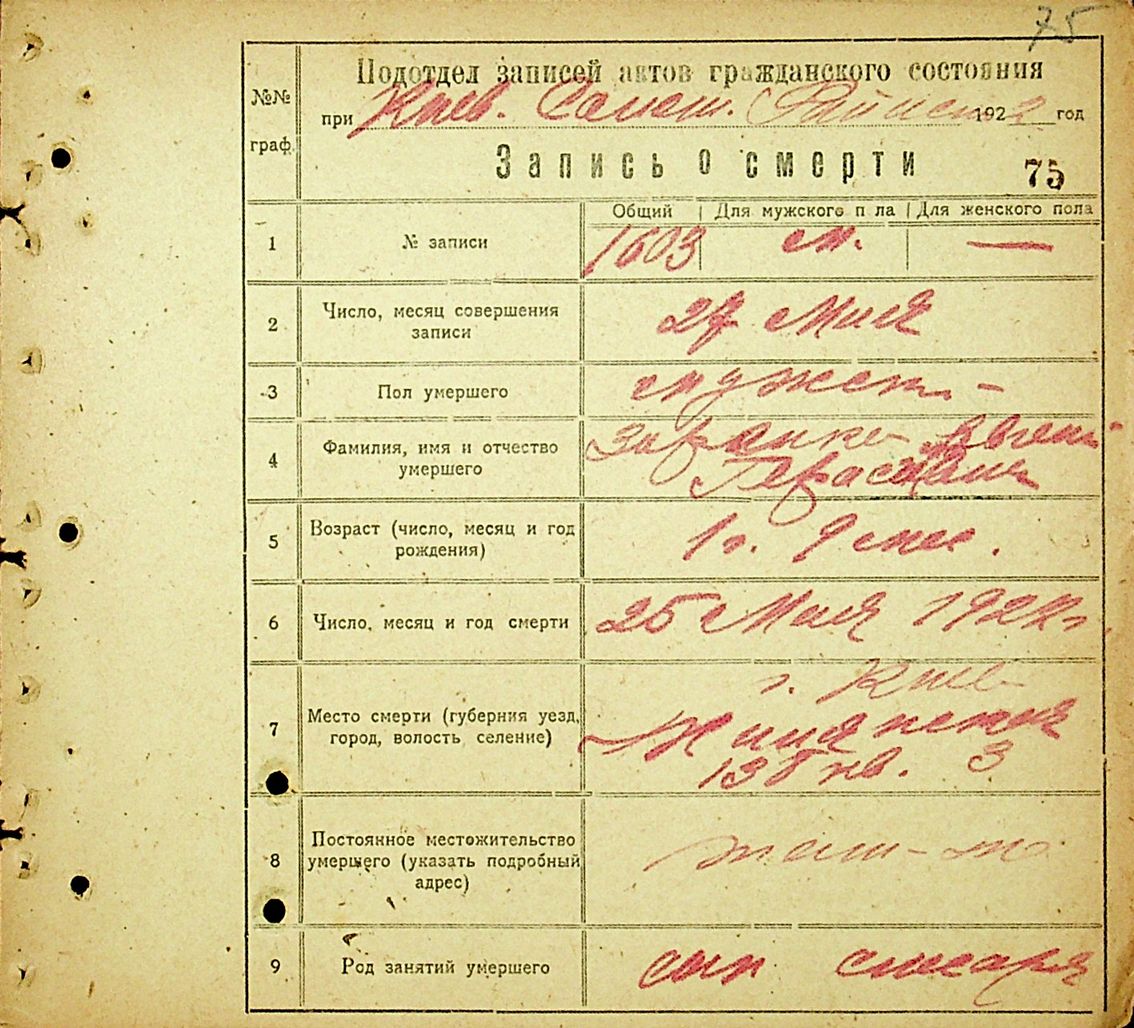 75
Подотдел записей актов гражданского состояния
№№ граф.
при Киев. 1922 год
Запись о смерти 75
Общий | Для мужского п ла | Для женского пола
1 № записи 1603 м. —
2 Число, месяц совершения записи 27 Мая
3 Пол умершего мужск. -
4 Фамилия, имя и отчество умершего
5 Возраст (число, месяц и год рождения) 1 г. 9 мес.
6 Число, месяц и год смерти 25 Мая 1922 г.
7 Место смерти (губерния уезд, город, волость селение) г. Киев
Жилянская
138 кв. 3
8 Постоянное местожительство умершего (указать подробный адрес)
9 Род занятий умершего сын слесаря